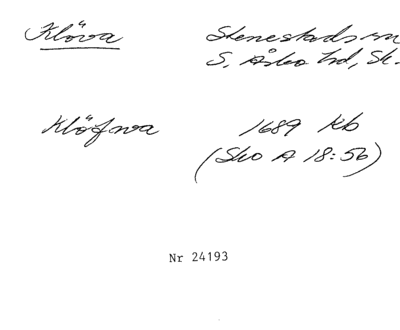 Klöva Stenestads sn
S. Åsbo hd, Sk.
Klöfwa 1689 Kb
(Sko A 18:5b)
Nr 24193